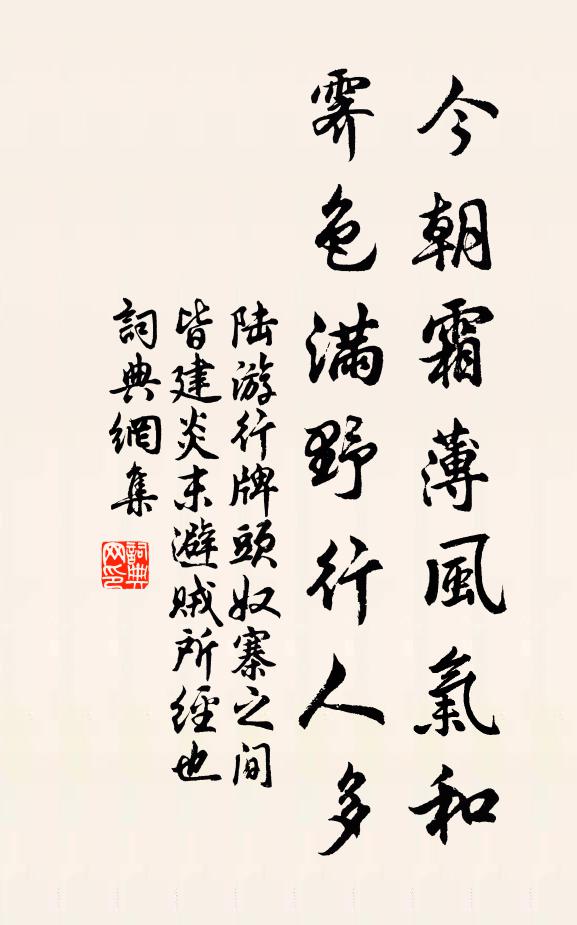 今朝霜薄風氣和
霽色滿野行人多
陆游行牌頭奴寨之间
皆建炎末避贼所經也
詞典網集
詞典网印